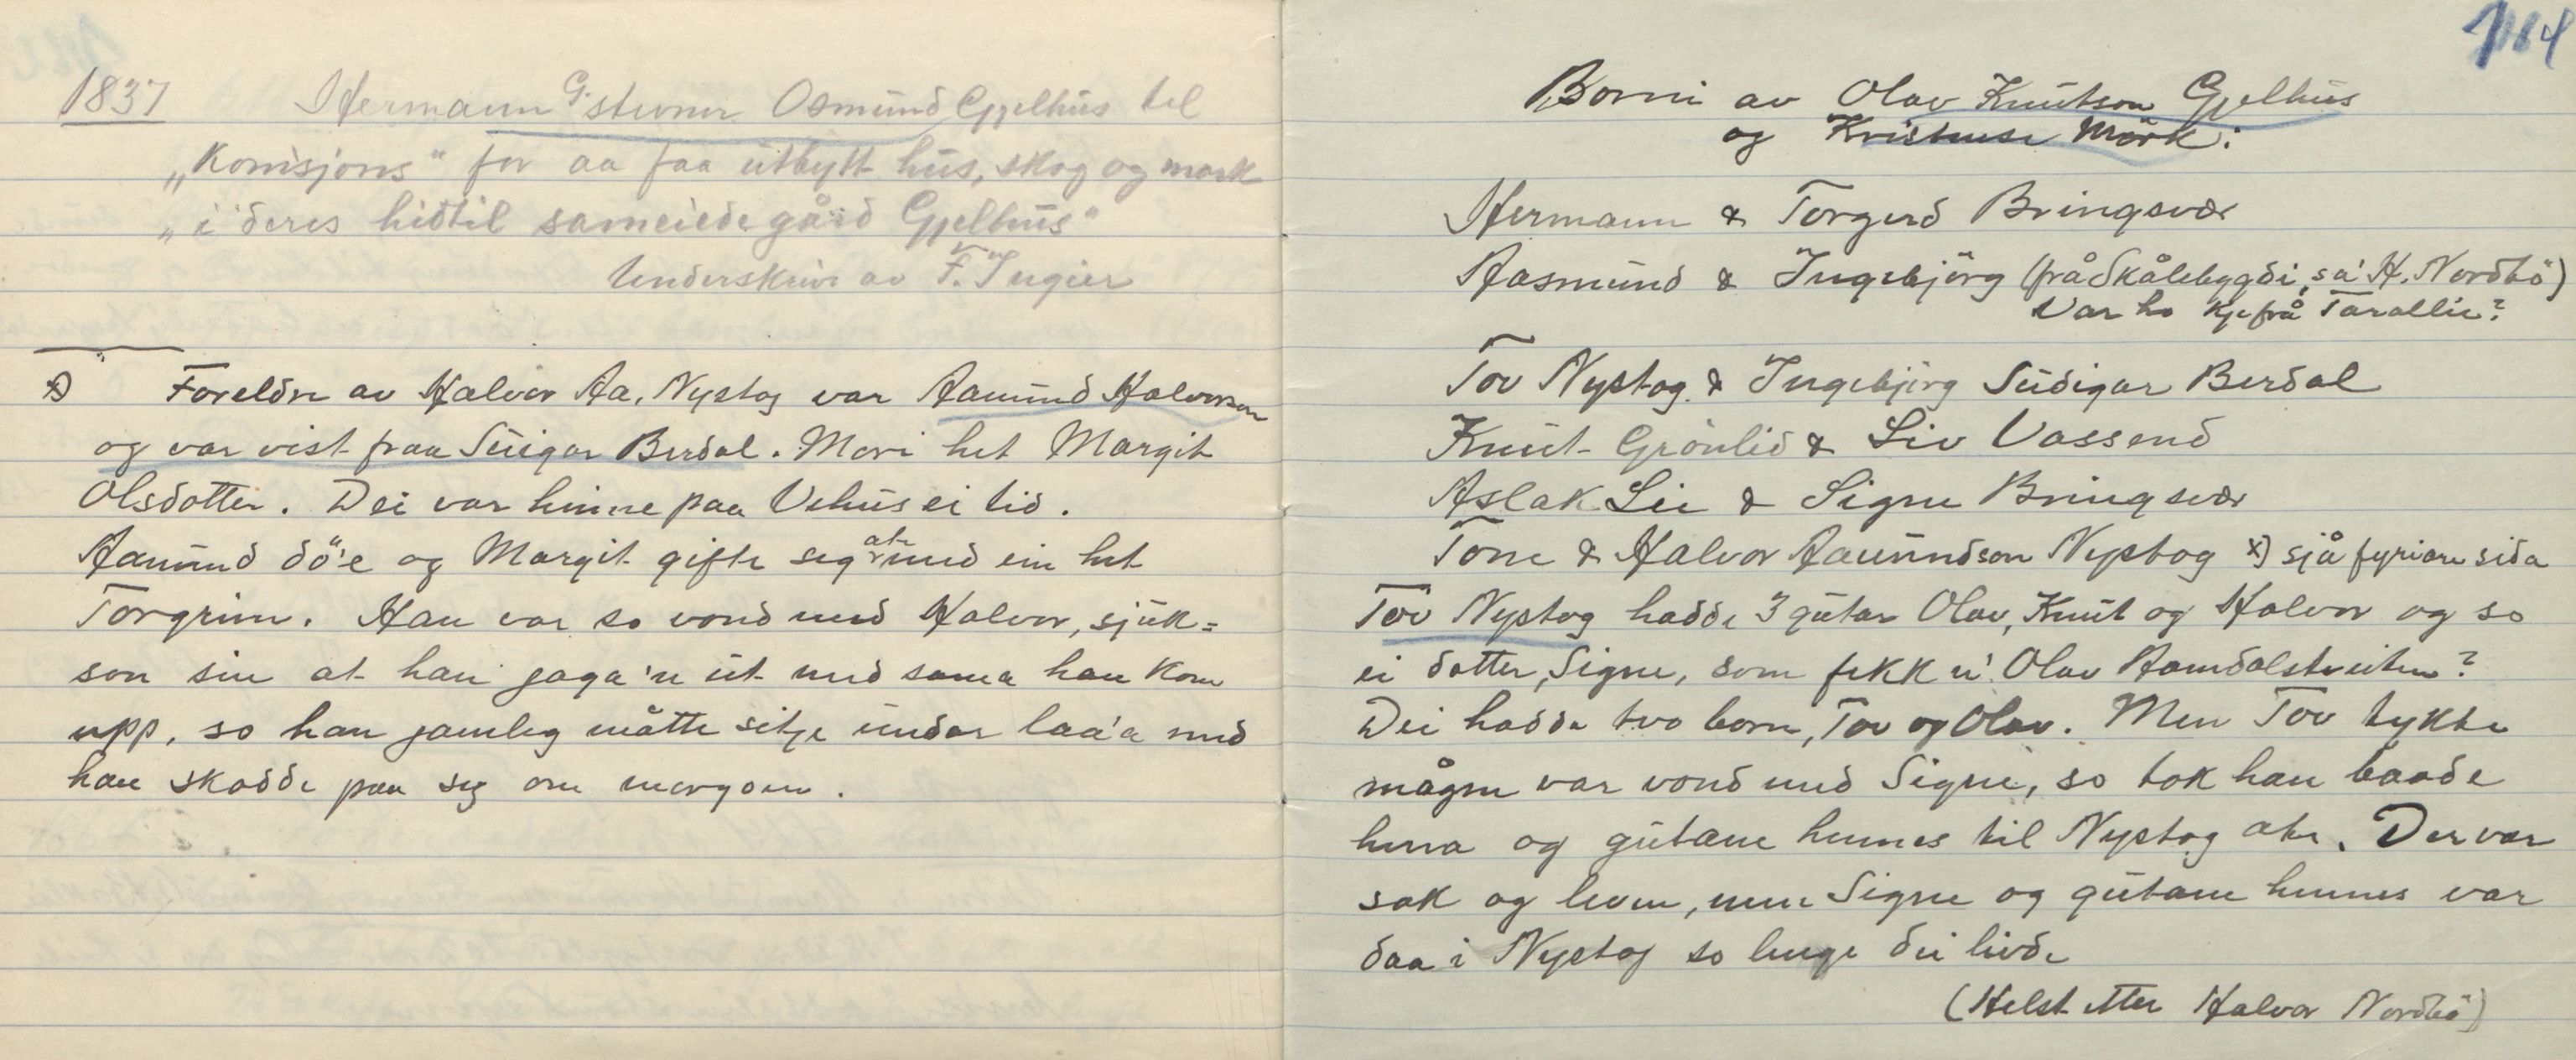 1837 Hermann G. stevner Osmund Gjelhus til
„Komisjons" for aa faa utbytt hus, skog og mark
„i deres hidtil sameiede gård Gjelhus"
Underskrive av F. Ingier
x) Foreldre av Halvor Aa. Nystog var Aamund Halvorson
og var vist fraa Suigar Berdal. Mori het Margit
Olsdotter. Dei var hinne paa Vehus ei tid.
Aamund dö'e og Margit gifte seg atr med ein het
Torgrim. Han var so vond med Halvor, sjuk=
son sin at han jaga'n ut med sama han kom
upp, so han jamleg måtte sitje undar laa'a med
han skodde paa seg om morgoen.
114
Borni av Olav Knutson Gjelhus
og Kristense Mörk:
Hermann & Torgerd Bringsvær
Aasmund & Ingebjörg (frå Skålebygdi, sa' H. Nordbö)
Var ho kje frå Tarallie?
Tov Nystog & Ingebjörg Sudigar Berdal
Knut Grönlid & Liv Vassend
Aslak Lie & Signe Bringsvær
Tone & Halvor Aamundson Nystog x) sjå fyriare sida
Tov Nystog hadde 3 gutar Olav, Knut og Halvor og so
ei dotter, Signe, som fekk n' Olav Aamdalstveiten?
Dei hadde tvo born, Tov og Olav. Men Tov tykte
mågen var vond med Signe, so tok han baade
henna og gutane hennes til Nystog atr. Der var
sak og leven, men Signe og gutane hennes var
daa i Nystog so lenge dei livde
(Helst etter Halvor Nordbö)